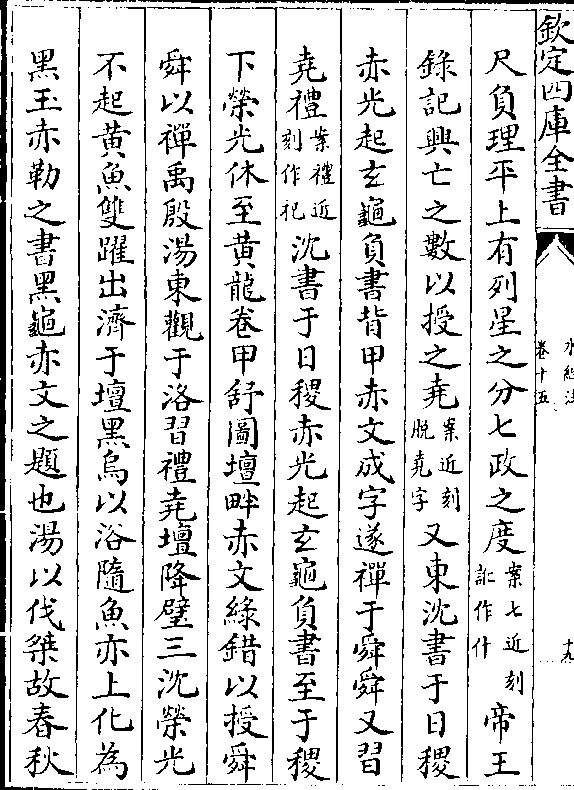 欽定四庫全書
水經注
卷十五
十九
尺負理平上有列星之分七政之度案七近刻訛作什帝王
錄記興亡之數以授之堯案近刻脫堯字又東沈書于日稷
赤光起玄龜負書背甲赤文成字遂禪于舜舜又習
堯禮案禮近刻作祀沈書于日稷赤光起玄龜負書至于稷
下榮光休至黃龍卷甲舒圖壇畔赤文綠錯以授舜
舜以禪禹殷湯東觀于洛習禮堯壇降璧三沈榮光
不起黃魚雙躍出濟于壇黑烏以浴隨魚亦上化為
黑玉赤勒之書黑龜赤文之題也湯以伐桀故春秋